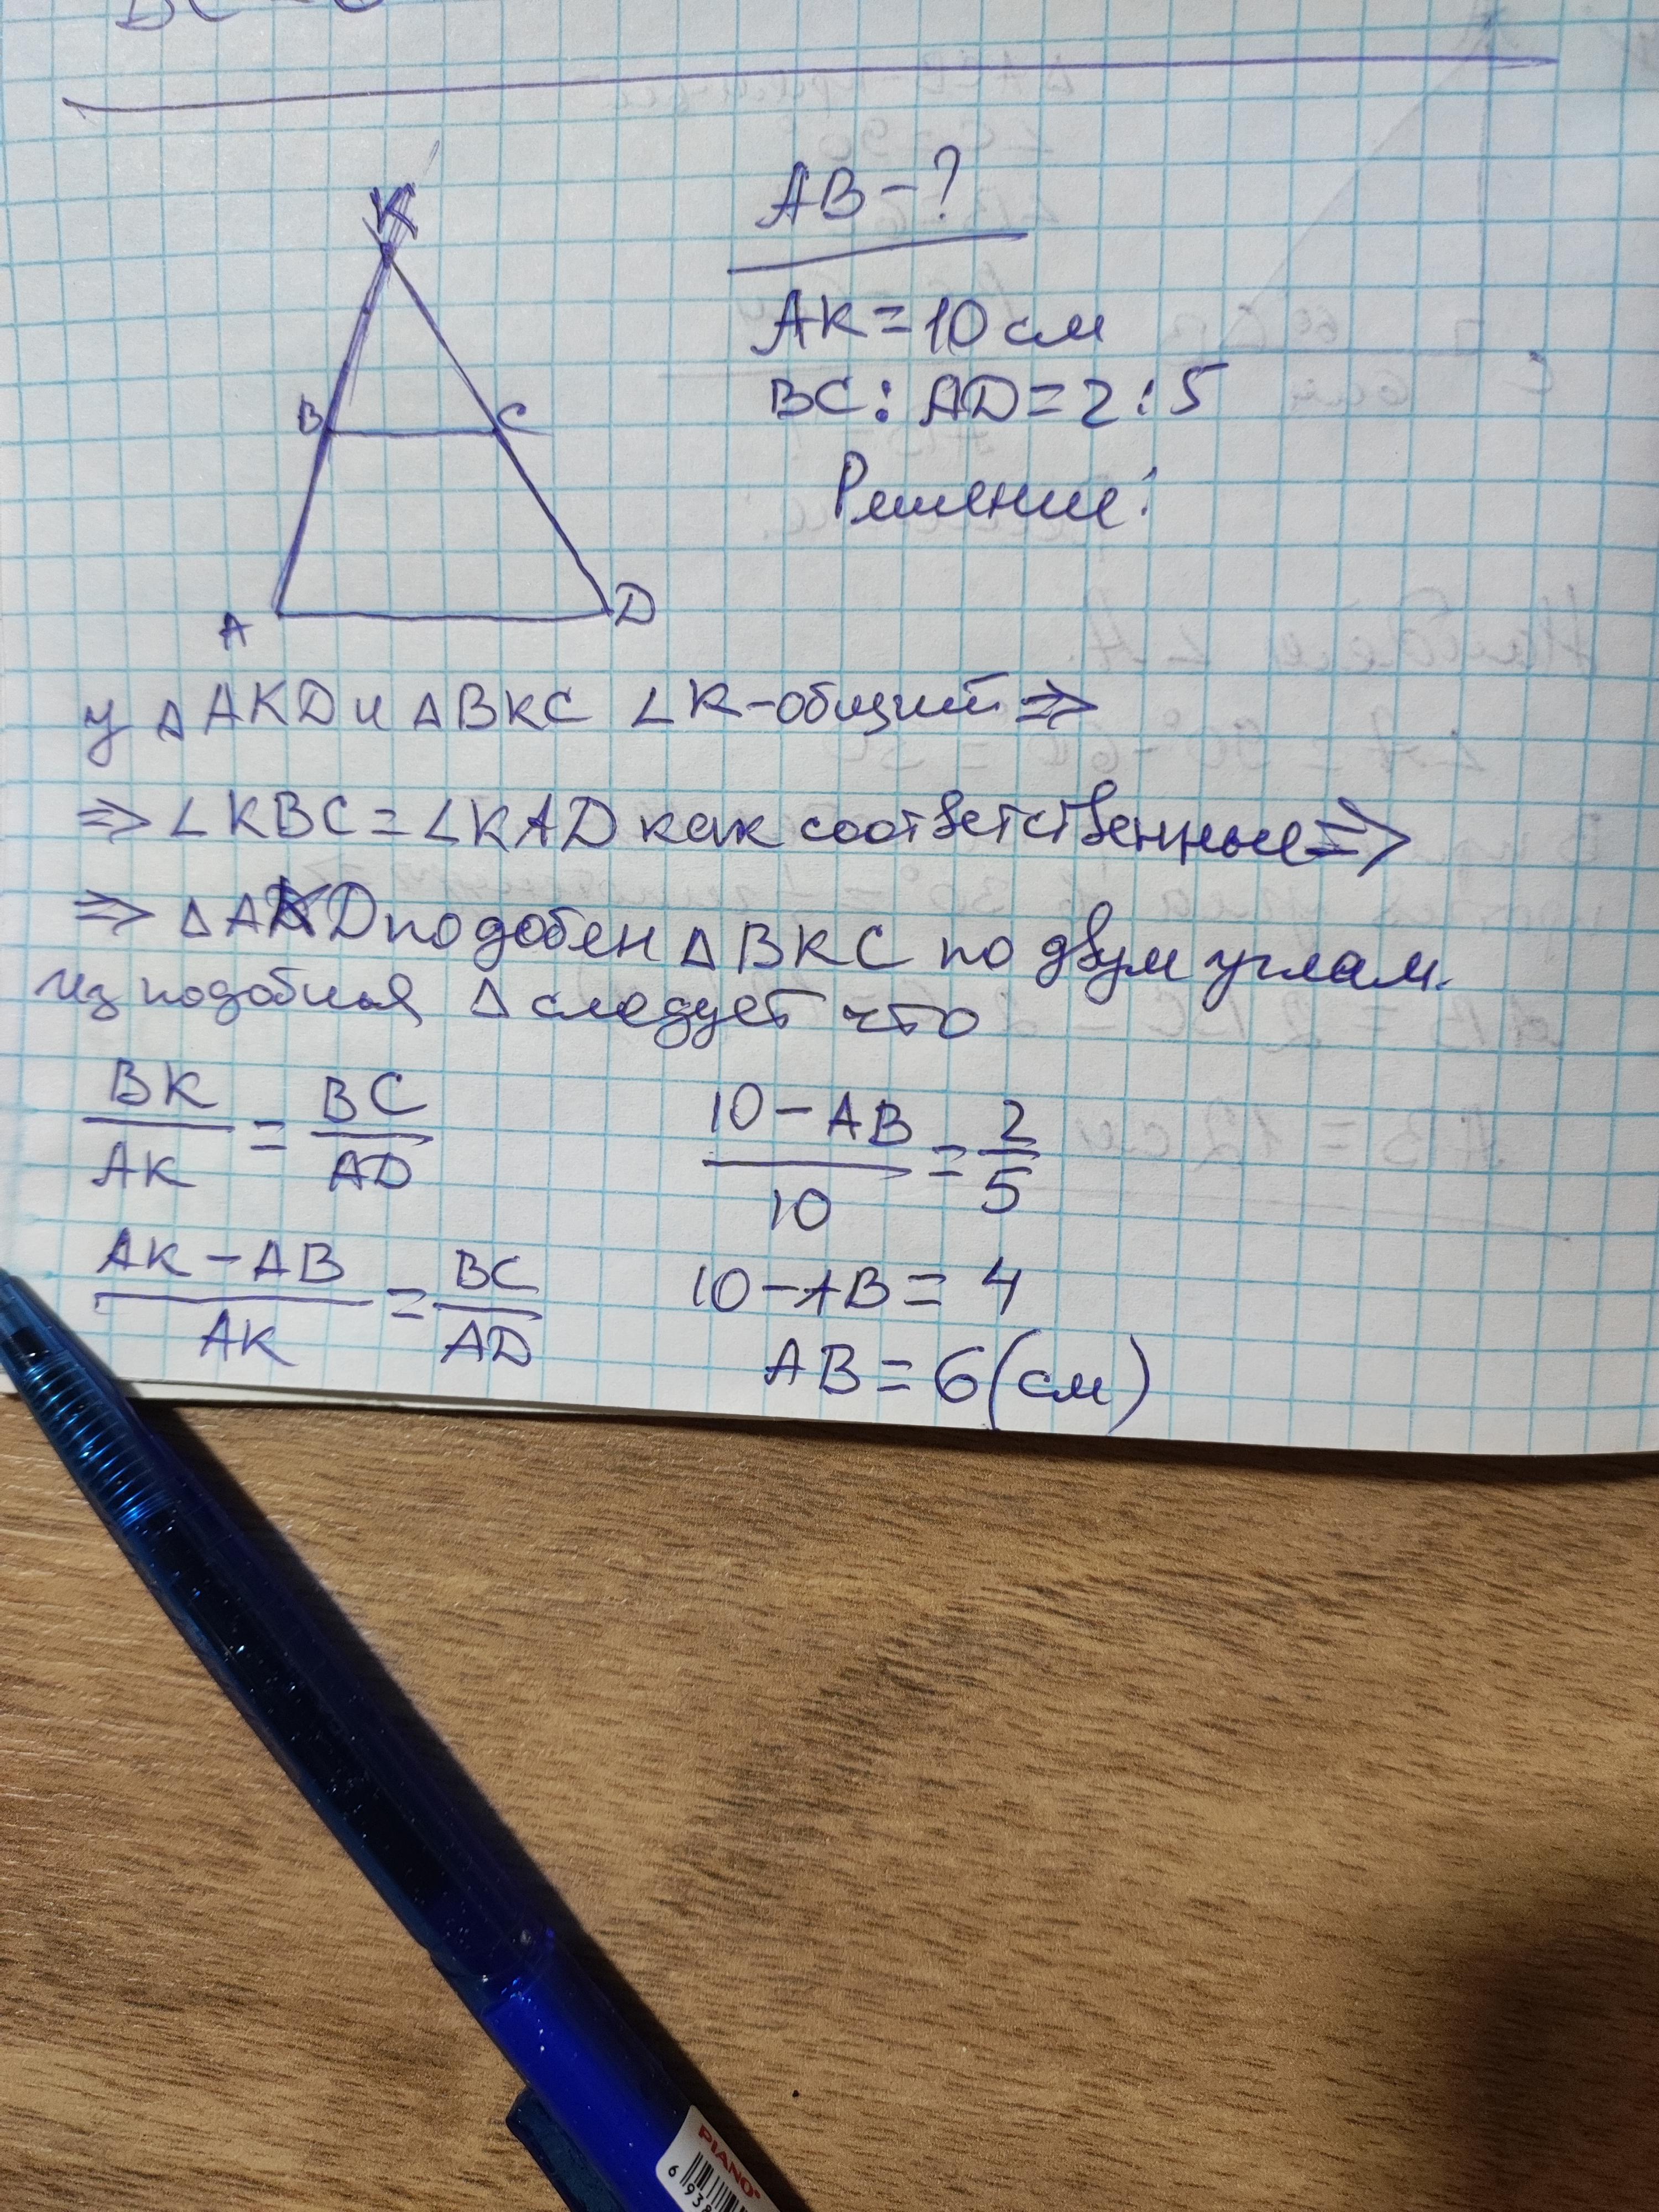 K
B
C
A
D
AB - ?
AK = 10 см
BC : AD = 2 : 5
Решение:
у △ AKD и △ BKC ∠K - общий ⇒
⇒ ∠KBC = ∠KAD как соответственные ⇒
⇒ △ AKD подобен △ BKC по двум углам.
Из подобия △ следует что
BK/AK = BC/AD
10 - AB/10 = 2/5
AK - AB/AK = BC/AD
10 - AB = 4
AB = 6 (см)
PIANO